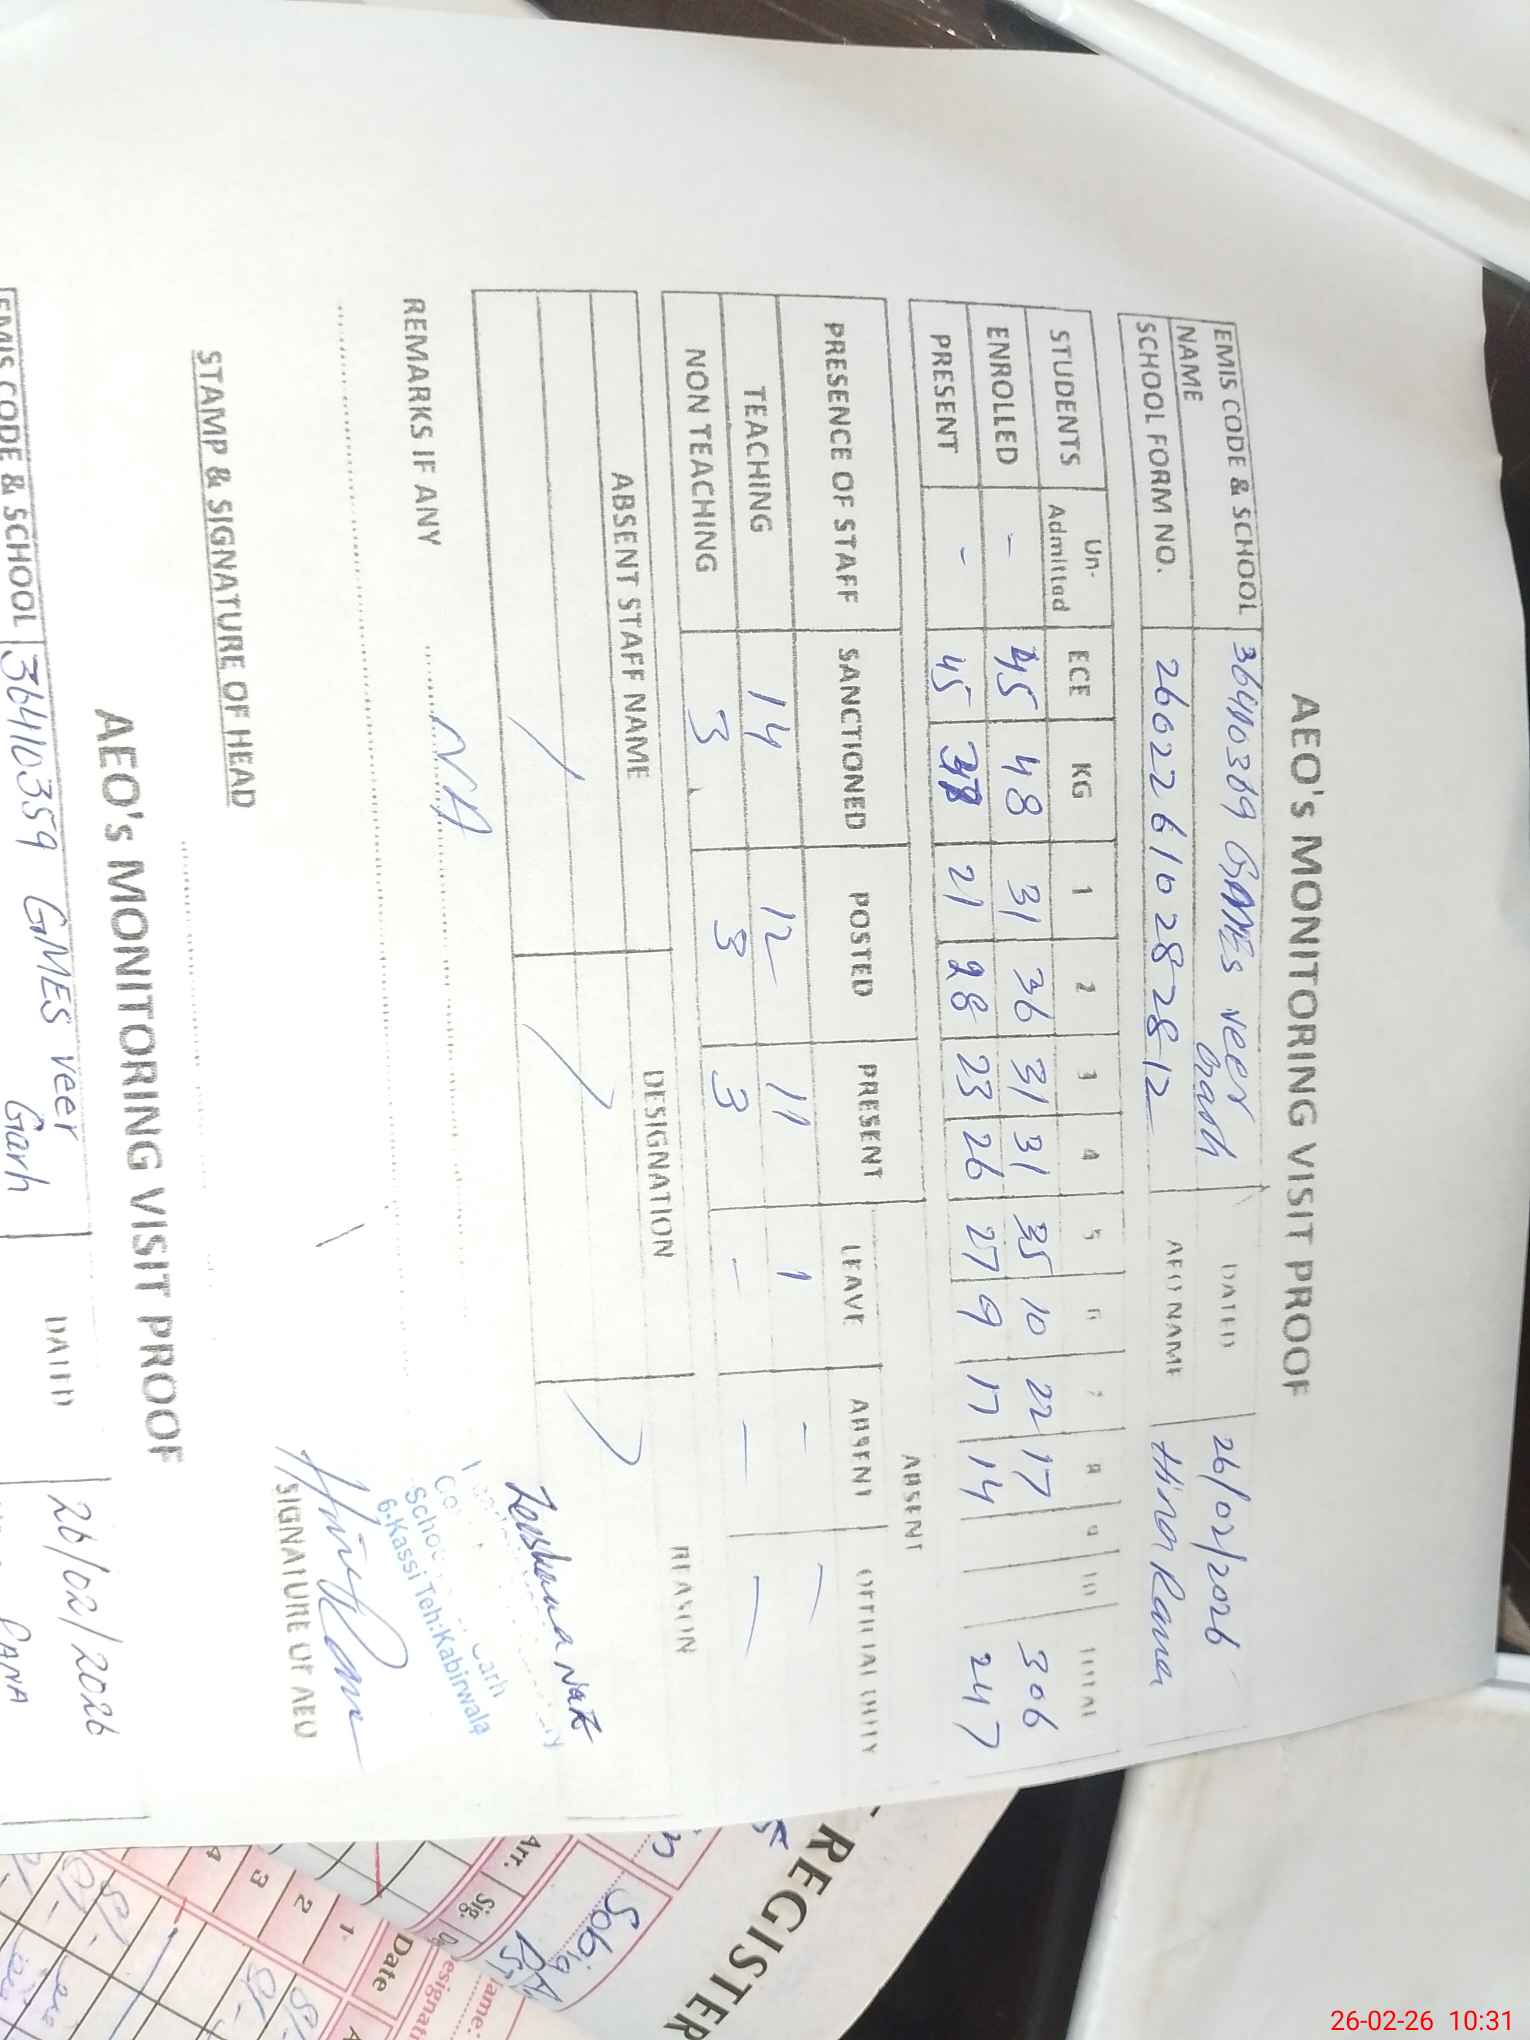 AEO's MONITORING VISIT PROOF
EMIS CODE & SCHOOL NAME 36410369 GMES veer Garh DATED 26/02/2026
SCHOOL FORM NO. 260226102828-12 AEO NAME Hina Rana
STUDENTS Un-Admitted ECE KG 1 2 3 4 5 6 7 8 9 10 TOTAL
ENROLLED - - 45 48 31 36 31 31 35 10 22 17 306
PRESENT - 45 21 28 23 26 27 9 17 14 247
ABSENT
PRESENCE OF STAFF SANCTIONED POSTED PRESENT LEAVE ABSENT OFFICIAL DUTY
TEACHING 14 12 11 1 - -
NON TEACHING 3 3 3 - - -
ABSENT STAFF NAME DESIGNATION REASON
REMARKS IF ANY
NA
6-Kassi Teh:Kabirwala
STAMP & SIGNATURE OF HEAD
SIGNATURE OF AEO
AEO's MONITORING VISIT PROOF
EMIS CODE & SCHOOL 36410359 GMES veer Garh DATED 26/02/2026
RANA
REGISTER
Sobia
PST
Arr. Sig.
Date
1
2
3
4
26-02-26 10:31